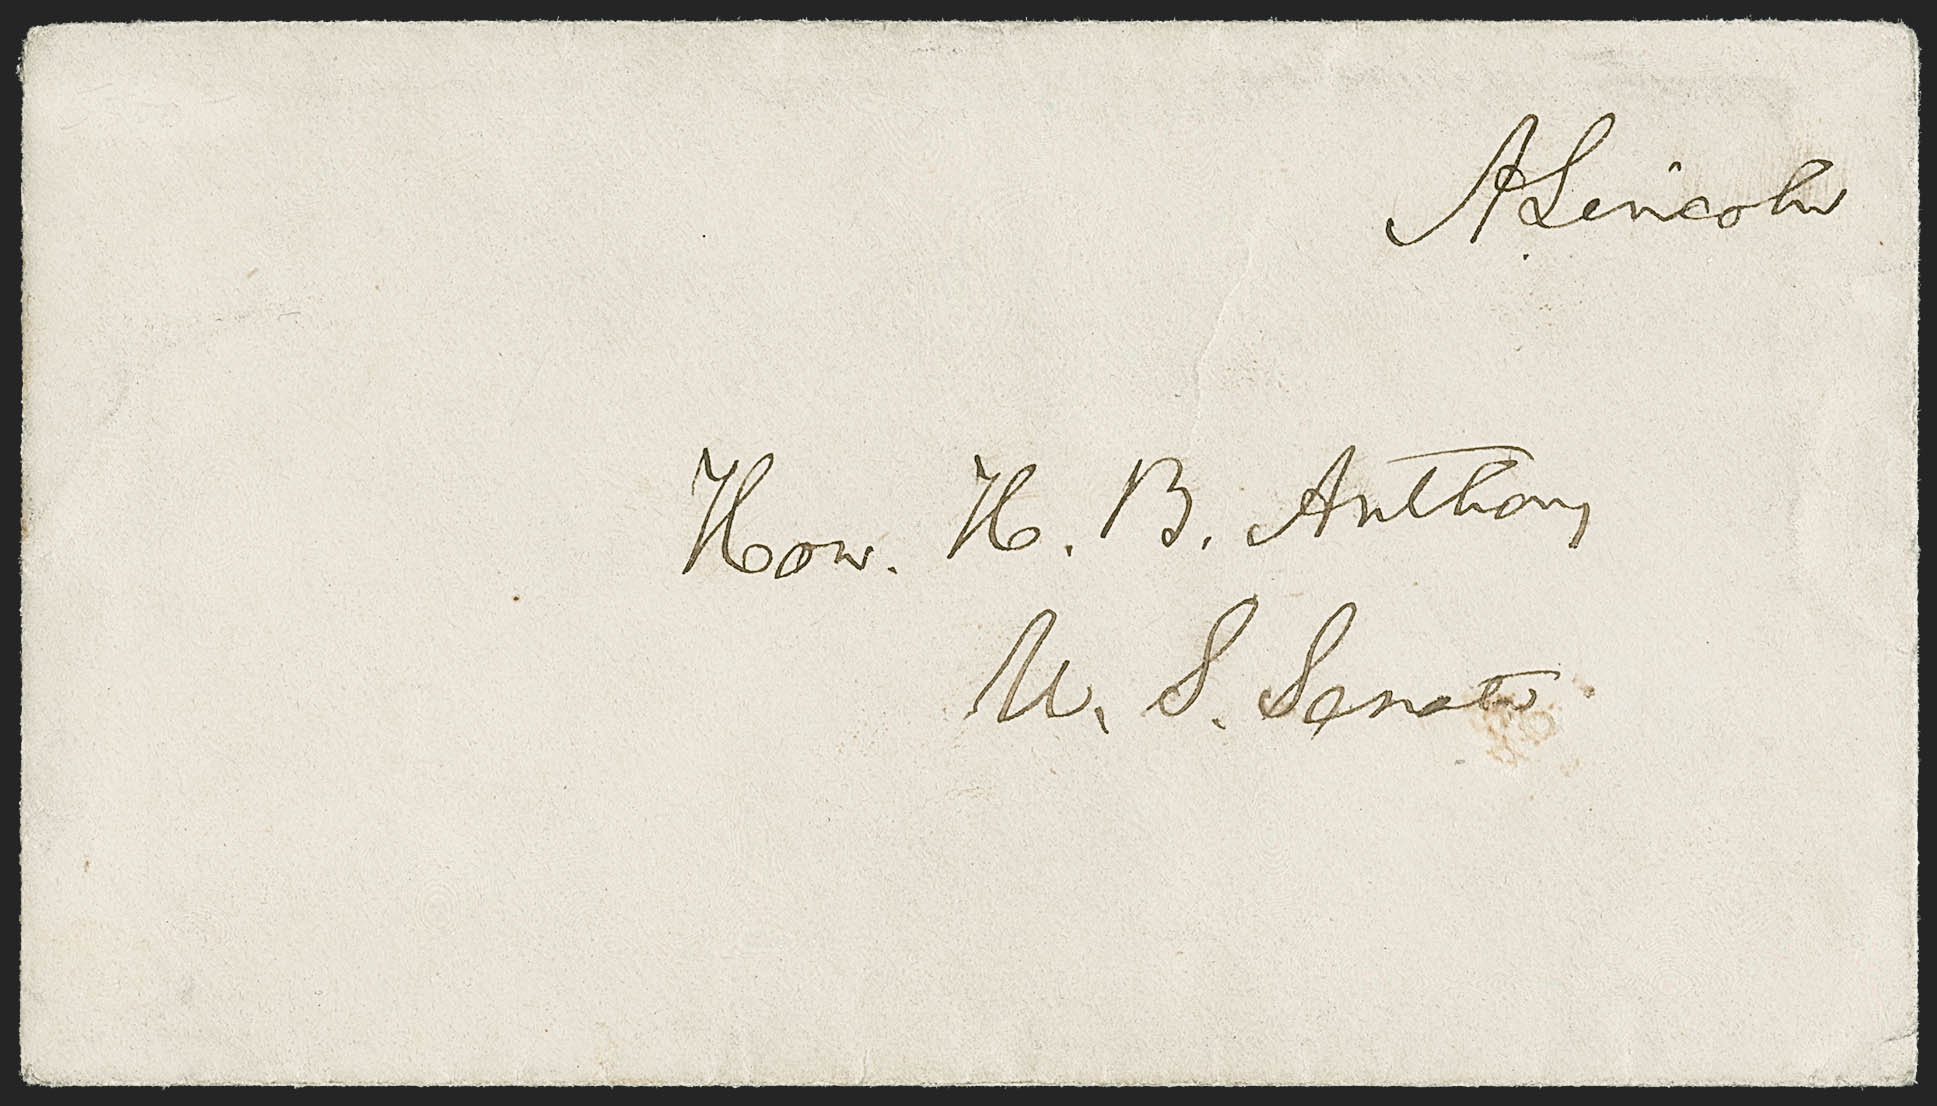 A Lincoln
Hon. H. B. Anthony
U. S. Senate